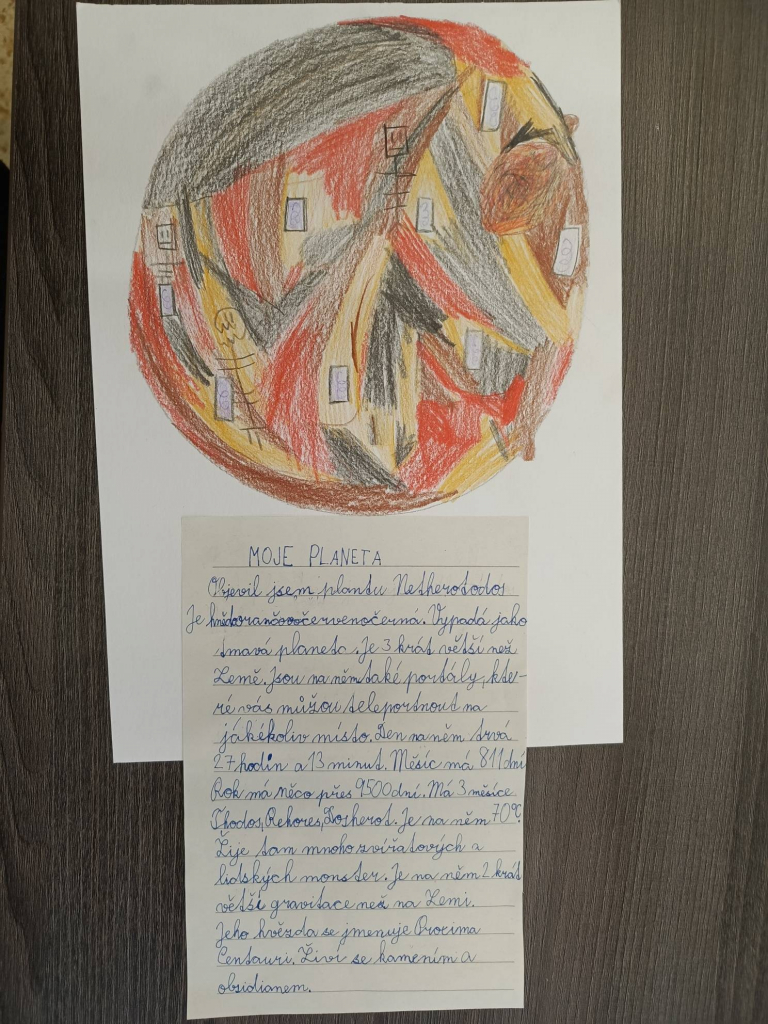 MOJE PLANETA
Objevil jsem plantu Netherotodos
Je hnědooranžovočervenočerná. Vypadá jako
tmavá planeta. Je 3 krát větší než
Země. Jsou na něm také portály, kte-
ré vás můžou teleportnout na
jákékoliv místo. Den na něm trvá
27 hodin a 13 minut. Měsíc má 811 dní
Rok má něco přes 9500 dní. Má 3 měsíce
Thodos, Rekores, Dosherot. Je na něm 70°C.
Žije tam mnoho zvířatových a
lidských monster. Je na něm 2 krát
větší gravitace než na Zemi.
Jeho hvězda se jmenuje Ororima
Centauri. Živí se kamením a
obsidianem.